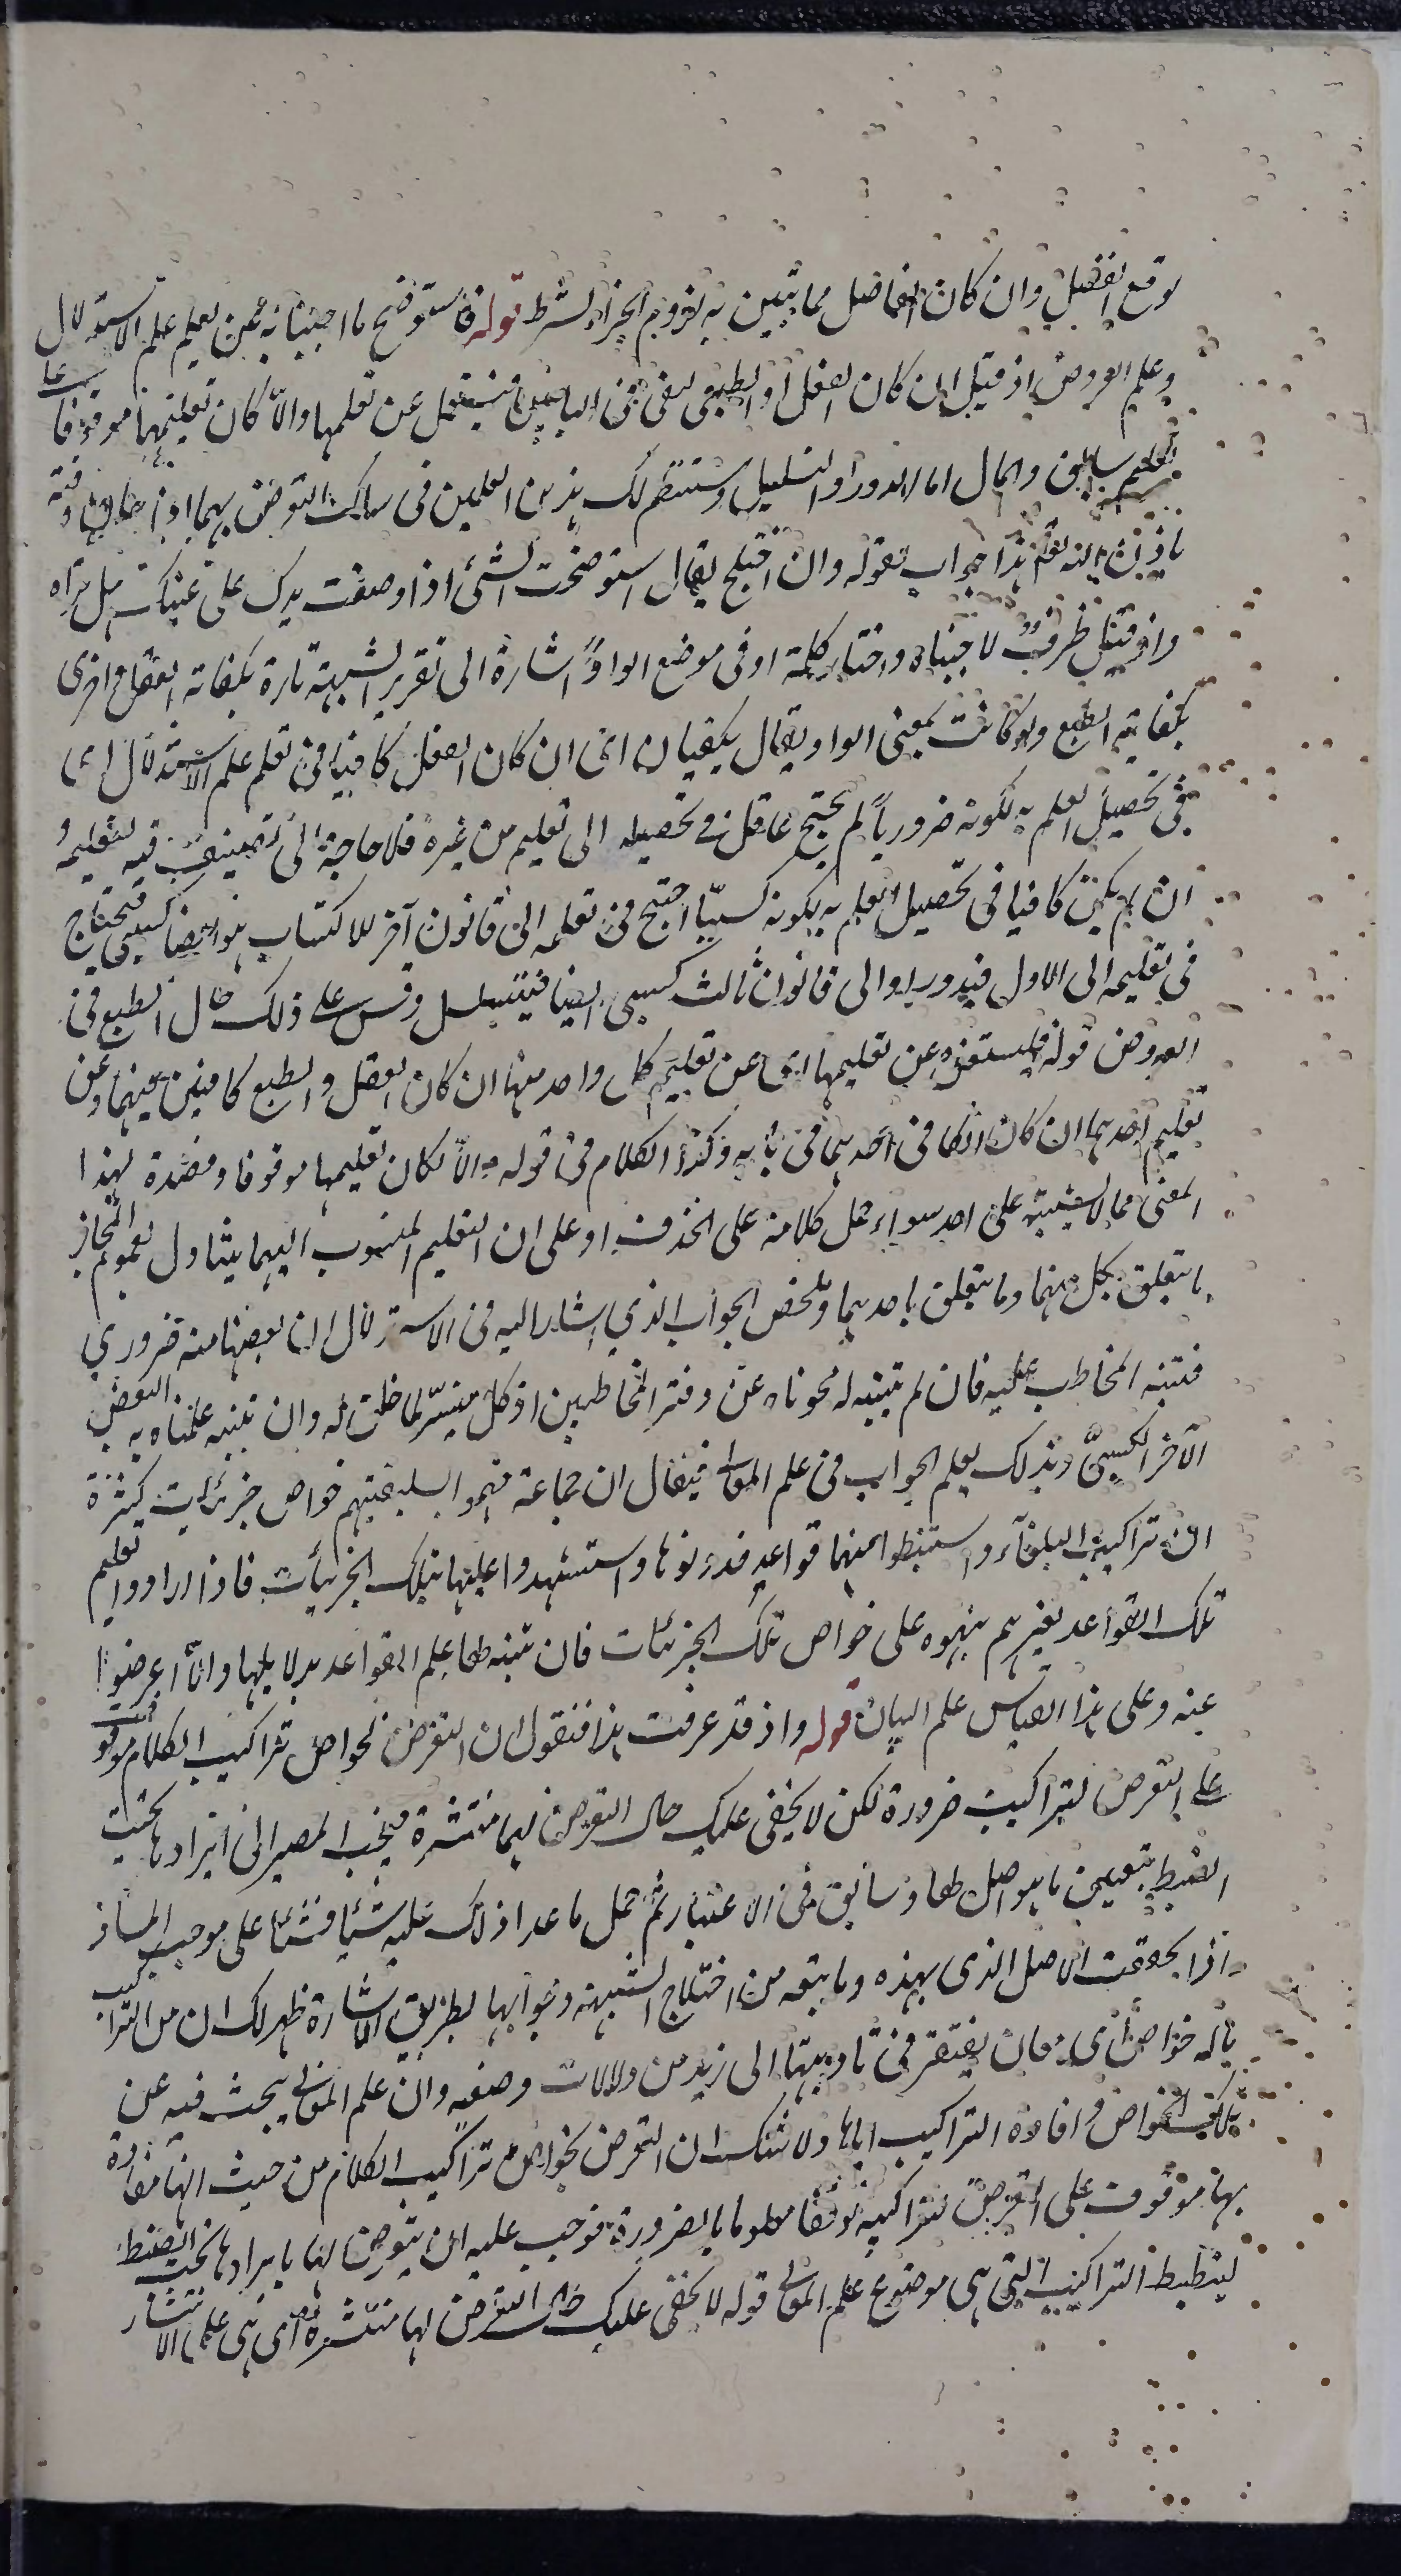 توقع الفصل وان كان الفاصل مما تبين به لزوم الجزاء للشرط قوله فاستوضح ما اجبنا به عمن تعليم علم الاستدلال
وعلم العروض اذ قيل ان كان العقل او الطبع يفى فى البابين فليستغن عن تعلمها والا كان تعليمهما موقوفا على
تعليم سابق والمال اما الدور او التسلسل وستنتظم لك هذين العلمين فى سلك التعرض بهما اوان
باذن الله تعالى هذا جواب بقوله وان اختلج يقال استوضحت الشئ اذا وضعت يدك على عينك هل تراه
واذ قيل ظرف لاجبناه واختار كلمة او فى موضع الواو اشارة الى تقرير الشبهة تارة بكفاية العقل واخرى
بكفاية الطبع ولو كانت بمعنى الواو يقال يكفيان اى ان كان العقل كافيا فى تعلم علم الاستدلال اى
فى تحصيل العلم به لكونه ضروريا لم يحتج عاقل فى تحصيله الى تعليم من غيره فلا حاجة الى تصنيف فيه لتعليمه و
ان لم يكن كافيا فى تحصيل العلم به لكونه كسبيا احتج فى تعلمه الى قانون آخر للاكتساب هو ايضا كسبى فيحتاج
فى تعليمه الى الاول فيدور او الى قانون ثالث كسبى ايضا فيتسلسل وقس على ذلك حال الطبع فى
العروض قوله فليستغن عن تعليمها اى عن تعليم كل واحد منها ان كان العقل والطبع كافيين فيهما وعن
تعليم احدهما ان كان الكافى احدهما فى بابه وكذا الكلام فى قوله والا لكان تعليمها موقوفا وقصده لهذا
المعنى مما لا يشتبه على احد سواء حمل كلامه على الحذف او على ان التعليم المنسوب اليهما يتناول لعموم المجاز
ما يتعلق بكل منهما وما يتعلق باحدهما وملخص الجواب الذي اشار اليه فى الاستدلال ان بعضها منه ضروري
فتنبه المخاطب عليه فان لم يتنبه له محوناه عن دفتر المخاطبين اذ كل ميسر لما خلق له وان تنبه علمناه به البعض
الآخر الكسبى وبذلك يعلم الجواب فى علم المعانى فيقال ان جماعة فهموا بسليقتهم خواص جزئيات كثيرة
من تراكيب البلغاء واستنبطوا منها قواعد فدونوها واستشهدوا عليها بتلك الجزئيات فاذا ارادوا تعليم
تلك القواعد لغيرهم نبهوه على خواص تلك الجزئيات فان تنبه لها علم القواعد بدلايلها والا اعرضوا
عنه وعلى هذا القياس علم البيان قوله واذ قد عرفت هذا فنقول ان التعرض لخواص تراكيب الكلام موقوف
على التعرض لتراكيبه ضرورة لكن لا يخفى عليك حال التعرض لها منتشرة فيجب المصير الى ايرادها تحت
الضبط بتعيين ما هو اصل لها وسابق فى الاعتبار ثم حمل ما عدا ذلك عليه شيئا فشيئا على موجب المساق
اذا تحققت الاصل الذى بهذه وما يتبعه من اختلاج الشبهة وجوابها بطريق الاشارة ظهر لك ان من التراكيب
ما له خواص اى معان يفتقر فى تاديتها الى ازيد من دلالات وضعه وان علم المعانى يبحث فيه عن
تلك الخواص وافادة التراكيب اياها ولا شك ان التعرض لخواص تراكيب الكلام من حيث انها مفادة
بها موقوف على التعرض لتراكيبه توقفا معلوما بالضرورة فوجب عليه ان يتعرض لها بايرادها تحت الضبط
لينضبط التراكيب التى هى موضوع علم المعانى قوله لا يخفى عليك حال التعرض لها منتشرة اى هى على الانتشار